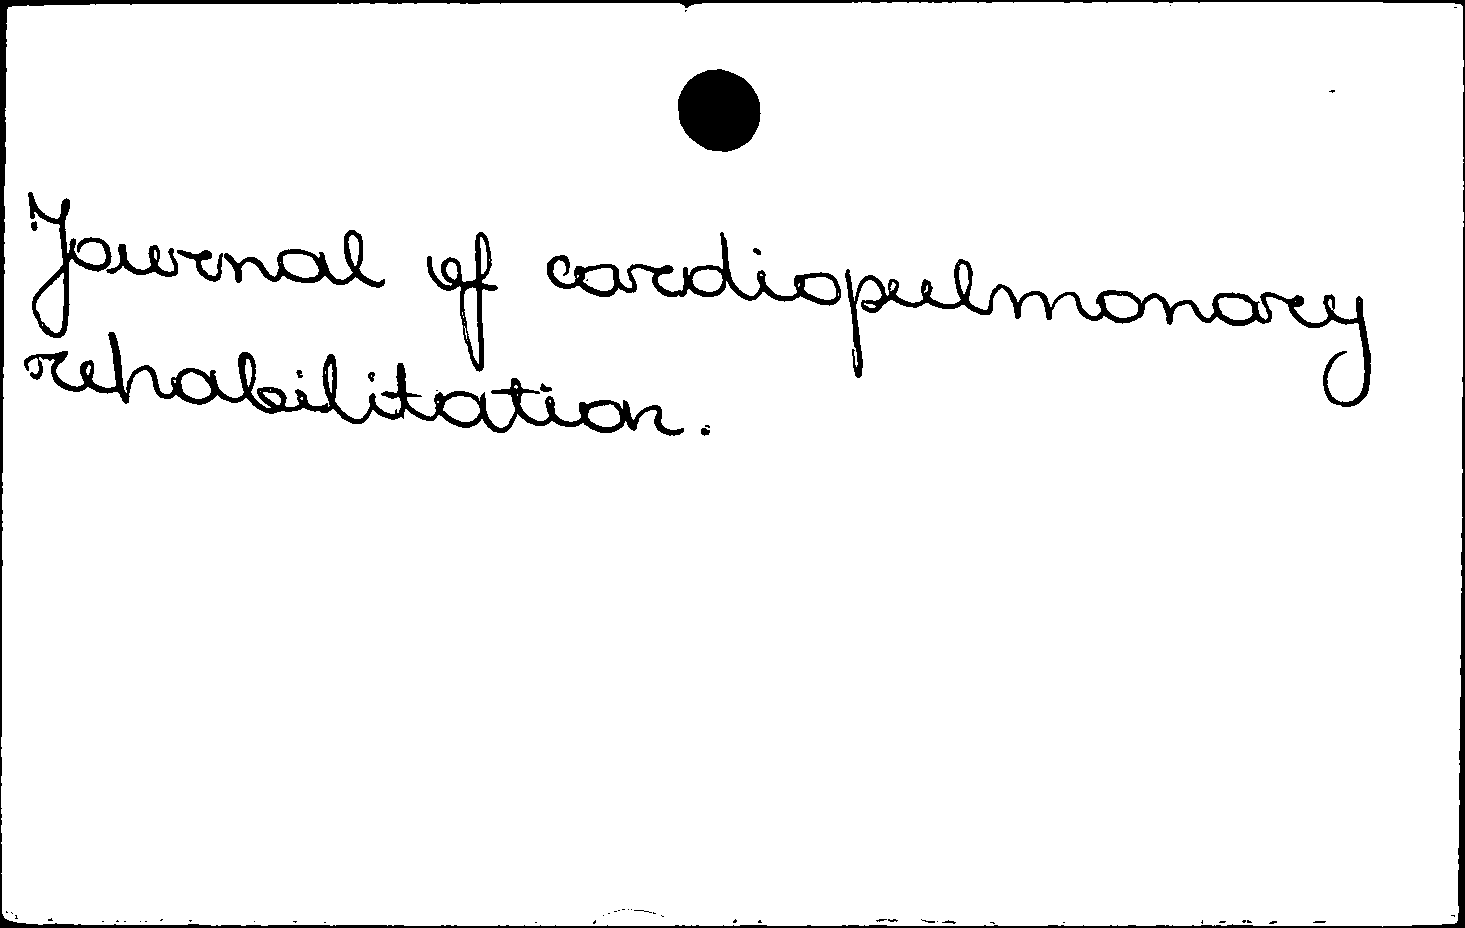 Journal of cardiopulmonary
rehabilitation.